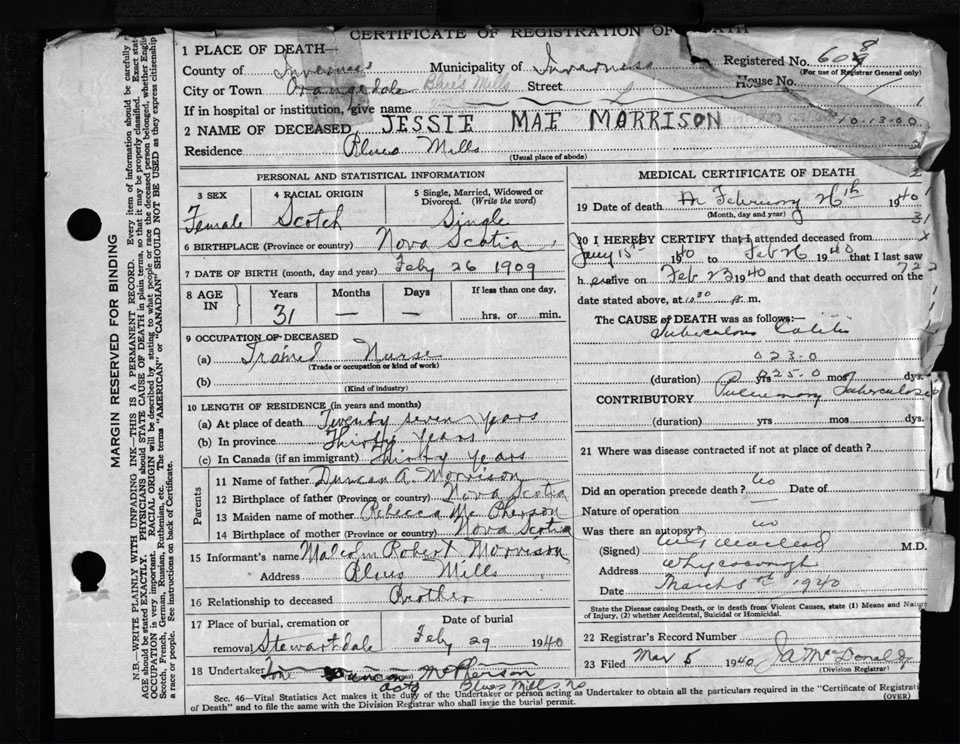 CERTIFICATE OF REGISTRATION OF DEATH
1 PLACE OF DEATH—
Registered No. 608
(For use of Registrar General only)
County of Inverness Municipality of Inverness
City or Town Orangedale Blue's Mills Street House No.
If in hospital or institution, give name
2 NAME OF DECEASED JESSIE MAE MORRISON
10-13-00
Residence Blues Mills
(Usual place of abode)
PERSONAL AND STATISTICAL INFORMATION
3 SEX 4 RACIAL ORIGIN 5 Single, Married, Widowed or Divorced. (Write the word)
Female Scotch Single
6 BIRTHPLACE (Province or country) Nova Scotia
7 DATE OF BIRTH (month, day and year) Feby 26 1909
8 AGE IN Years Months Days If less than one day,
31 — — hrs. or min.
9 OCCUPATION OF DECEASED
(a) Trained Nurse
(Trade or occupation or kind of work)
(b)
(Kind of industry)
10 LENGTH OF RESIDENCE (in years and months)
(a) At place of death Twenty seven years
(b) In province Thirty Years
(c) In Canada (if an immigrant) Thirty Years
Parents
11 Name of father Duncan A. Morrison
12 Birthplace of father (Province or country) Nova Scotia
13 Maiden name of mother Rebecca McPherson
14 Birthplace of mother (Province or country) Nova Scotia
15 Informant's name Malcolm Robert Morrison
Address Blues Mills
16 Relationship to deceased Brother
17 Place of burial, cremation or removal Stewartdale
Date of burial
Feby 29 1940
18 Undertaker McPherson
Blues Mills NS
MEDICAL CERTIFICATE OF DEATH
19 Date of death February 26th 1940
(Month, day and year)
20 I HEREBY CERTIFY that I attended deceased from
Jany 15th 1940 to Feb 26 1940 that I last saw
her alive on Feb 23 1940 and that death occurred on the
date stated above, at 10 30 p. m.
The CAUSE OF DEATH was as follows:—
Tuberculous Colitis
023.0
(duration) yrs 025.0 mos dys.
CONTRIBUTORY Pulmonary Tuberculosis
(duration) yrs mos dys.
21 Where was disease contracted if not at place of death?
Did an operation precede death? No Date of
Nature of operation
Was there an autopsy? no
(Signed) M.D.
Address Whycocomagh
Date March 5th 1940
State the Disease causing Death, or in death from Violent Causes, state (1) Means and Nature
of Injury, (2) whether Accidental, Suicidal or Homicidal.
22 Registrar's Record Number
23 Filed Mar 5 1940 J A McDonald
(Division Registrar)
Sec. 46—Vital Statistics Act makes it the duty of the Undertaker or person acting as Undertaker to obtain all the particulars required in the "Certificate of Registration
of Death" and to file the same with the Division Registrar who shall issue the burial permit. (OVER)
MARGIN RESERVED FOR BINDING
N.B.—WRITE PLAINLY WITH UNFADING INK—THIS IS A PERMANENT RECORD. Every item of information should be carefully
AGE should be stated EXACTLY. PHYSICIANS should STATE CAUSE OF DEATH in plain terms, so that it may be properly classified. Exact
OCCUPATION is very important. RACIAL ORIGIN will be described by stating to what people or race the deceased person belonged, whether English
Scotch, French, German, Russian, Ruthenian, etc. The terms "AMERICAN" or "CANADIAN" SHOULD NOT BE USED as they express citizenship
a race or people. See instructions on back of Certificate.